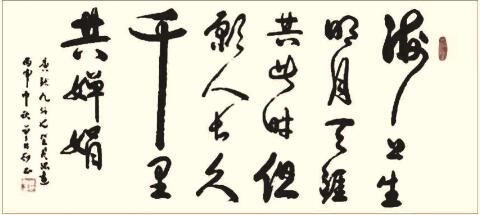 海上生
明月天涯
共此時但
願人長久
千里
共嬋娟
丙申中秋